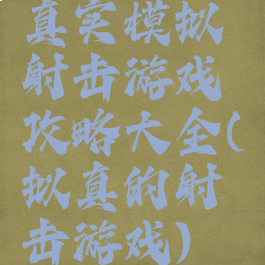 真实模拟
射击游戏
攻略大全(
拟真的射
击游戏)